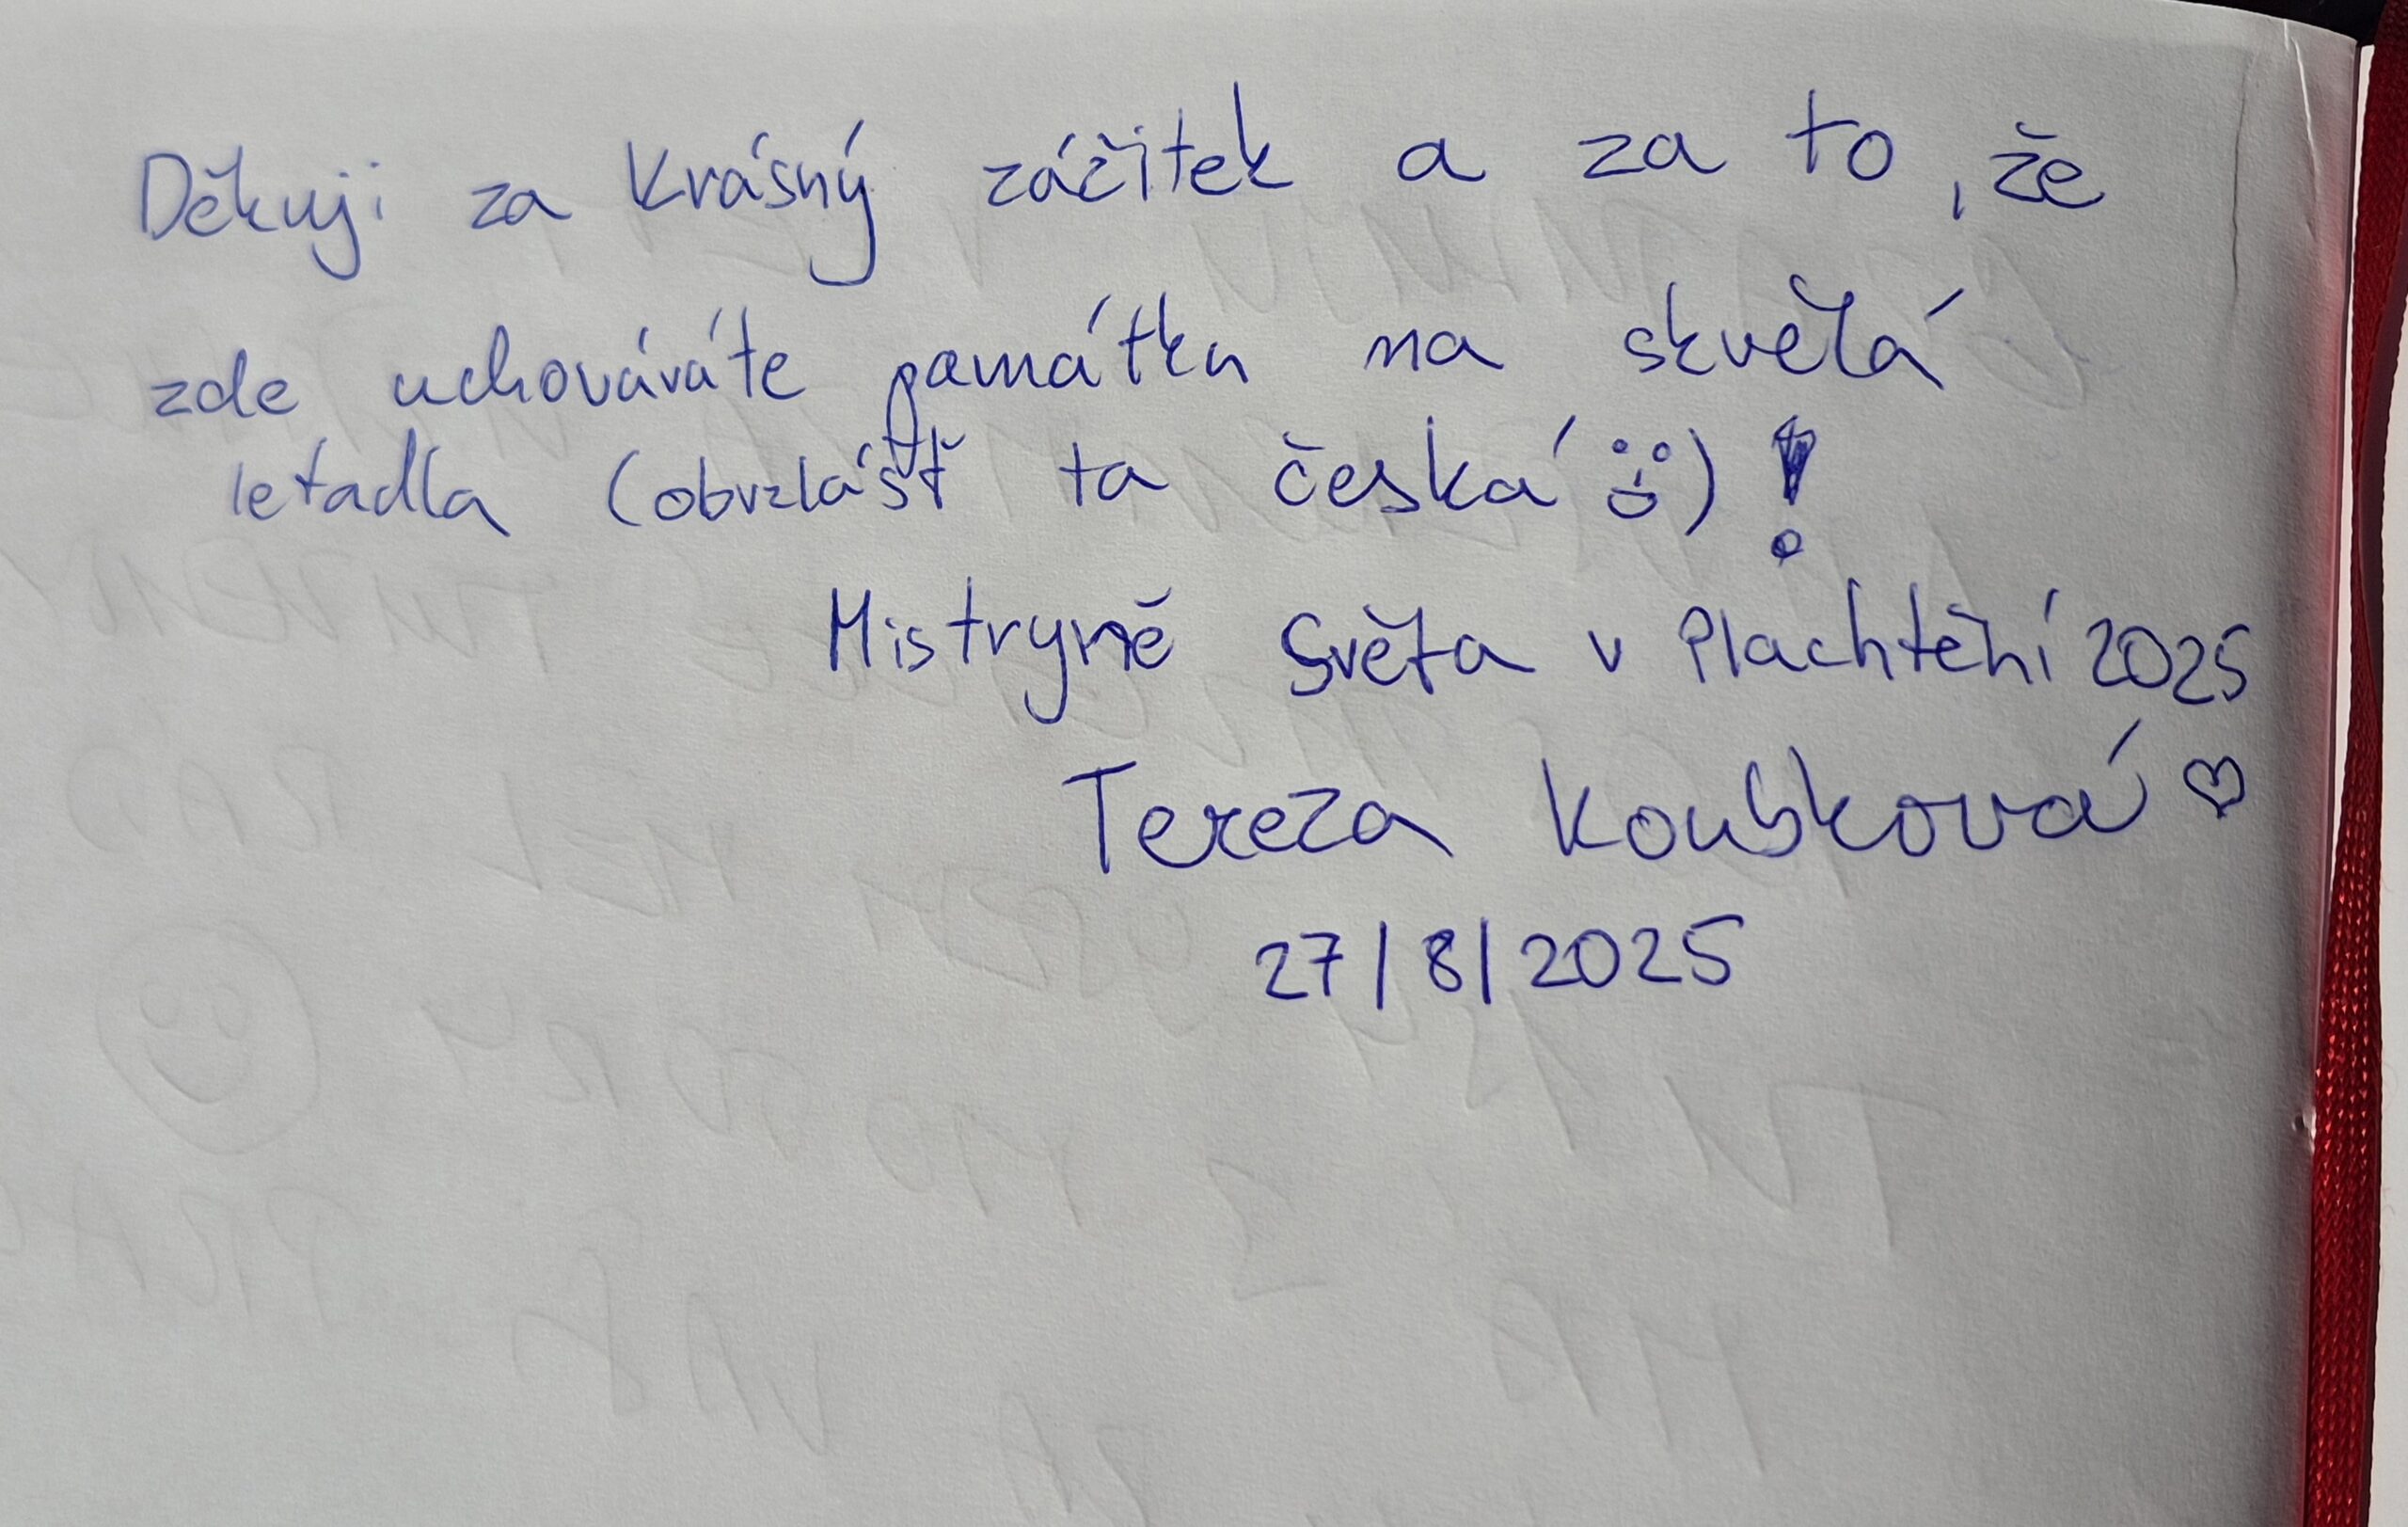 Děkuji za krásný záčitek a za to, že
zde uchováváte památku na skvělá
letadla (obvzlášť ta česká :))!
Mistryně Světa v Plachtění 2025
Tereza Koubková ♡
27/8/2025